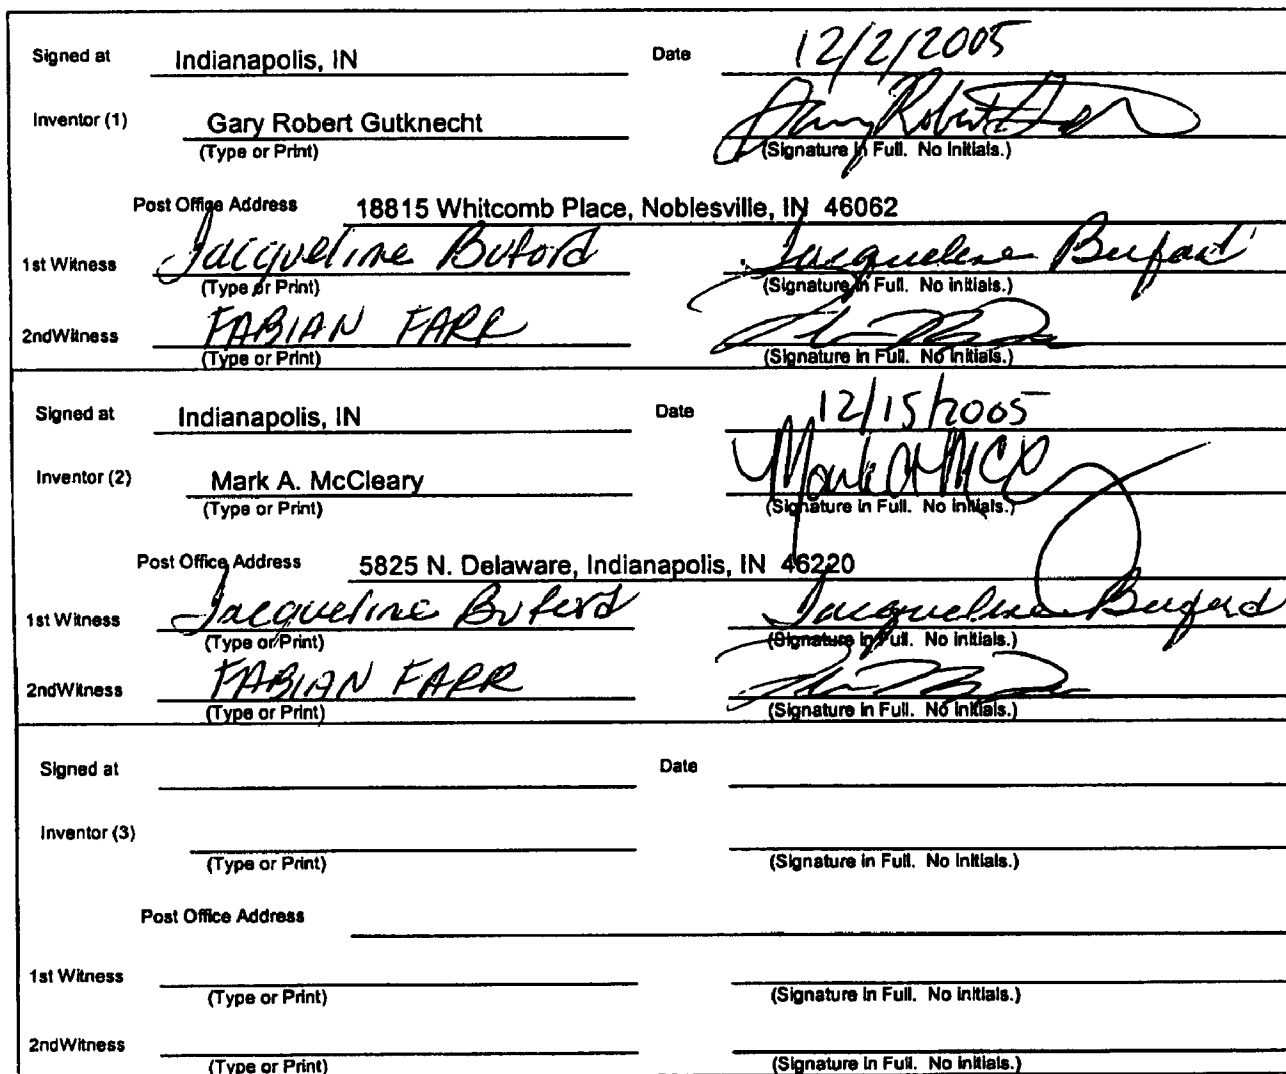 Signed at Indianapolis, IN Date 12/2/2005
Inventor (1) Gary Robert Gutknecht Gary Robert
(Type or Print) (Signature in Full. No Initials.)
Post Office Address 18815 Whitcomb Place, Noblesville, IN 46062
1st Witness Jacqueline Buford Jacqueline Buford
(Type or Print) (Signature in Full. No initials.)
2ndWitness FABIAN FARR
(Type or Print) (Signature in Full. No initials.)
Signed at Indianapolis, IN Date 12/15/2005
Inventor (2) Mark A. McCleary Mark A McC
(Type or Print) (Signature in Full. No initials.)
Post Office Address 5825 N. Delaware, Indianapolis, IN 46220
1st Witness Jacqueline Buford Jacqueline Buford
(Type or Print) (Signature in Full. No initials.)
2ndWitness FABIAN FARR
(Type or Print) (Signature in Full. No initials.)
Signed at Date
Inventor (3)
(Type or Print) (Signature in Full. No initials.)
Post Office Address
1st Witness
(Type or Print) (Signature in Full. No initials.)
2ndWitness
(Type or Print) (Signature in Full. No initials.)